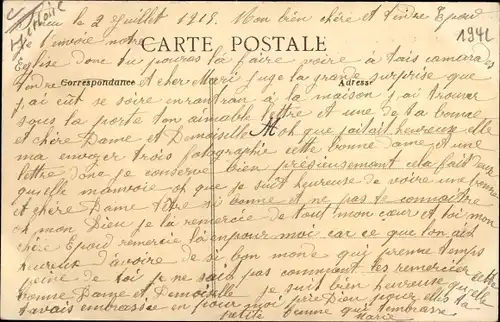 le 2 Juillet 1915. Mon bien chère et tendre Epoux
Je t'envoie notre
1942
CARTE POSTALE
Eglise donc tu pouras la faire voire à tais camarades
Correspondance
Adresse
tendre et cher Mari juge la grande surprise que
j'ai eut se soire en rentran à la maison j'ai trouver
sous la porte ton aimable lettre et une de ta bonne
et chère Dame et Demoiselle Ah que j'aitait heureuse elle
ma envoyer trois fotographie cette bonne dame et une
lettre donc je conserve bien présieusement cela fait
qu'elle m'anvoie oh que je suit heureuse de voire une bonne
et chère Dame être si bonne et ne pas te connaitre
oh mon Dieu je la remercie de tout mon cœur et toi mon
chère Epoux remercie la bien pour moi car ce que ton
heureux d'avoire de si bon monde qui prenne temps
peine de toi je ne sait pas comment les remercier cette
bonne Dame et Demoiselle je suit bien heureuse qu'elle
t'avais embrassée en pour moi prie Dieu pour elles ta
petite bonne que t'embrasse
Marie